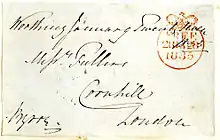 Worthing January Twenty
Messrs Fullers
Cornhill
London
FREE
1835